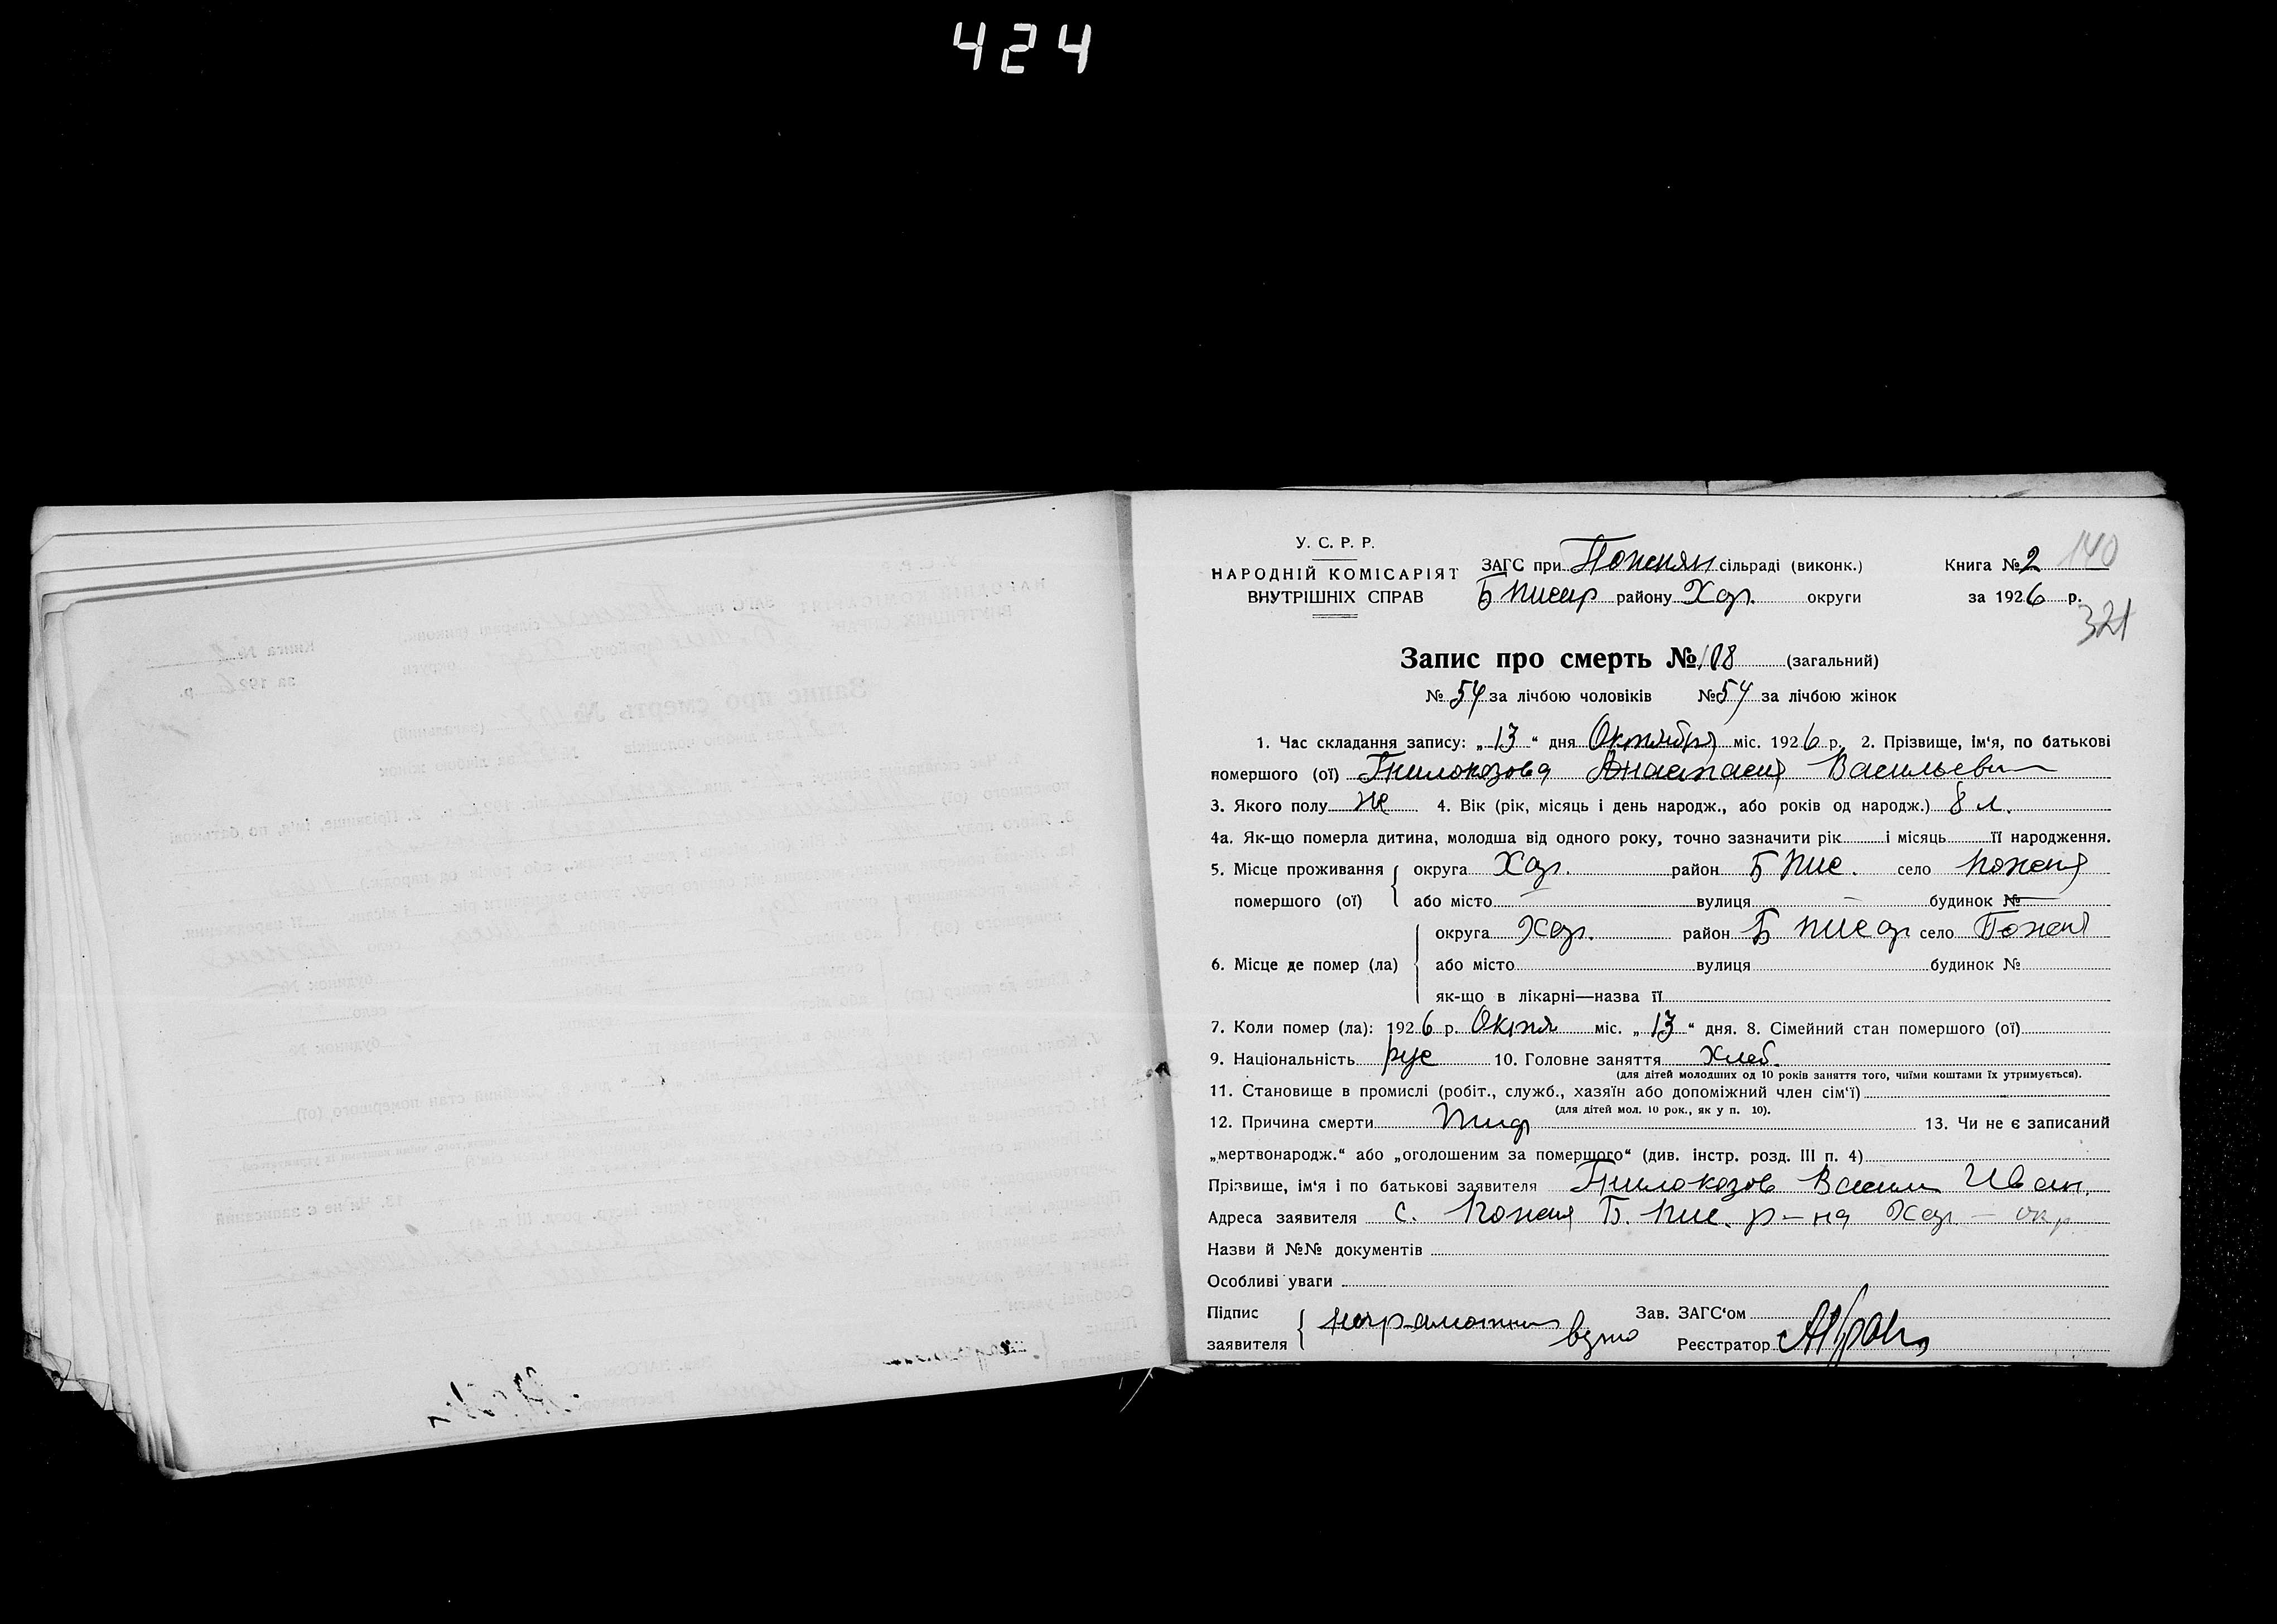 424
У. С. Р. Р.
НАРОДНІЙ КОМІСАРІЯТ
ВНУТРІШНІХ СПРАВ
ЗАГС при Пожнян сільраді (виконк.)
Б Писар району Хар. округи
Книга № 2 140
за 1926 р.
321
Запис про смерть № 108 (загальний)
№ 54 за лічбою чоловіків № 54 за лічбою жінок
1. Час складання запису: „13“ дня Октября міс. 1926 р. 2. Прізвище, ім‘я, по батькові
помершого (ої) Гнилокозова Анастасия Васильевн
3. Якого полу же 4. Вік (рік, місяць і день народж., або років од народж.) 8 л.
4а. Як-що померла дитина, молодша від одного року, точно зазначити рік і місяць її народження.
5. Місце проживання помершого (ої) округа Хар. район Б Пис. село Пожня
або місто — вулиця — будинок №
6. Місце де помер (ла) округа Хар. район Б Писар село Пожня
або місто вулиця будинок №
як-що в лікарні—назва її
7. Коли помер (ла): 1926 р. Октя міс. „13“ дня. 8. Сімейний стан помершого (ої)
9. Національність рус 10. Головне заняття Хлеб.
(для дітей молодших од 10 років заняття того, чиїми коштами їх утримується).
11. Становище в промислі (робіт., служб., хазяїн або допоміжний член сім‘ї)
(для дітей мол. 10 рок., як у п. 10).
12. Причина смерти Тиф 13. Чи не є записаний
„мертвонародж.“ або „оголошеним за помершого“ (див. інстр. розд. III п. 4)
Прізвище, ім‘я і по батькові заявителя Гнилокозов Васили Иван.
Адреса заявителя с. Пожня Б. Пис. р-на Хар - окр
Назви й №№ документів
Особливі уваги
Підпис заявителя неграмотни
Зав. ЗАГС‘ом
Реєстратор